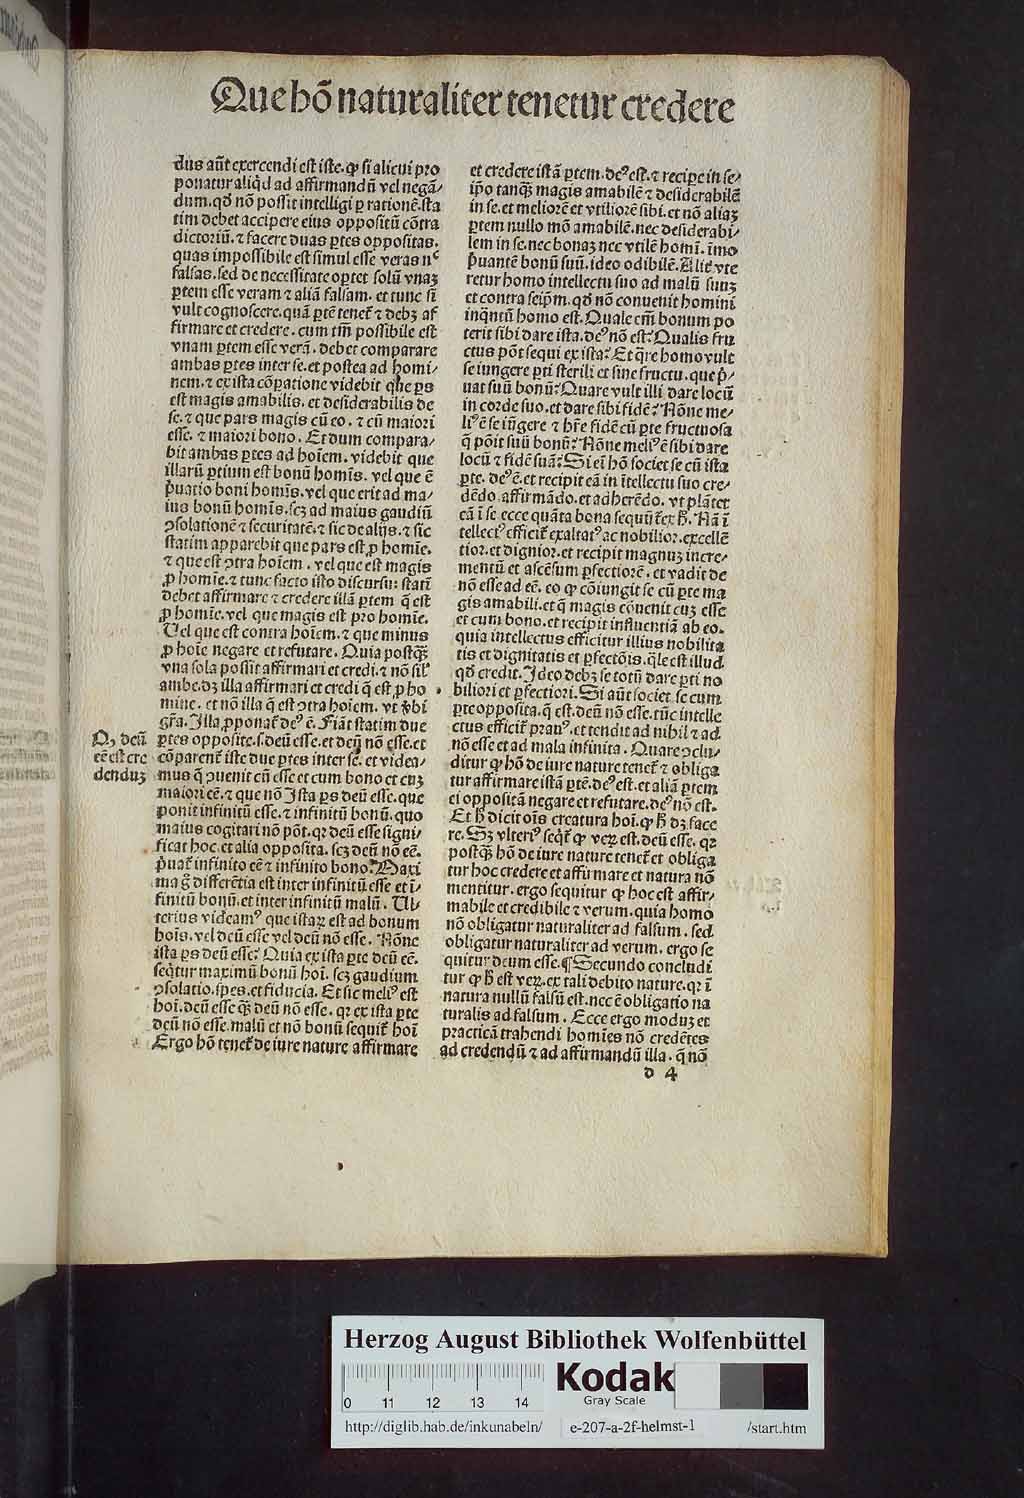 Que hõ naturaliter tenetur credere
dus aũt exercendi est iste. ꝙ si alicui pro
ponatur aliq̇d ad affirmandũ vel negã/
dum. qḋ nõ possit intelligi ꝑ rationẽ. sta
tim debet accipere eius oppositũ cõtra
dictoriũ. ⁊ facere duas ꝑtes oppositas.
quas impossibile est simul esse veras nᶜ
falsas. sed de necessitate oꝑtet solũ vnaꝫ
ꝑtem esse veram ⁊ aliã falsam. et tunc si
vult cognoscere. quã ꝑtẽ tenet᷑ ⁊ debꝫ af
firmare et credere. cum tm̃ possibile est
vnam ꝑtem esse verã. debet comparare
ambas ꝑtes inter se. et postea ad homi/
nem. ⁊ ex ista cõꝑatione videbit que ꝑs
est magis amabilis. et desiderabilis de
se. ⁊ que pars magis cũ eo. ⁊ cũ maiori
esse. ⁊ maiori bono. Et dum compara/
bit ambas ꝑtes ad hoĩem. videbit que
illarũ ꝑtium est bonũ homĩs. vel que ẽ
p̃uatio boni homĩs. vel que erit ad ma/
ius bonũ homĩs. scꝫ ad maius gaudiũ
ꝯsolationẽ ⁊ securitatẽ. ⁊ sic de alijs. ⁊ sic
statim apparebit que pars est ꝓ homĩe.
⁊ que est ꝯtra hoĩem. vel que est magis
ꝓ homĩe. ⁊ tunc facto isto discursu: statĩ
debet affirmare ⁊ credere illã ꝑtem q̃ est
ꝓ homĩe. vel que magis est pro homĩe.
Vel que est contra hoĩem. ⁊ que minus
ꝓ hoĩe negare et refutare. Quia postqꝫ̃
vna sola possit affirmari et credi. ⁊ nõ sil̃
ambe. dꝫ illa affirmari et credi q̃ est ꝓ ho
mine. et nõ illa q̃ est ꝯtra hoĩem. vt v̓bi
gr̃a. Illa ꝓponat᷑ deꝰ ẽ. Fiãt statim due
ꝑtes opposite. s. deũ esse. et deũ nõ esse. et
cõparent᷑ iste due ꝑtes inter se. et videa/
mus q̃ ꝯuenit cũ esse et cum bono et cuꝫ
maiori eẽ. ⁊ que nõ Ista ꝑs deũ esse. que
ponit infinitũ esse. ⁊ infinitũ bonũ. quo
maius cogitari nõ põt. qꝛ deũ esse signi/
ficat hoc. et alia opposita. scꝫ deũ nõ eẽ.
p̃uat᷑ infinito eẽ ⁊ infinito bono. Maxi
ma g̊ differẽtia est inter infinitũ esse et ĩ/
finitũ bonũ. et inter infinitũ malũ. Vl/
terius videamꝰ que istaꝝ est ad bonum
hoĩs. vel deũ esse vel deũ nõ esse. Nõne
ista ꝑs deũ esse? Quia ex ista ꝑte deũ eẽ.
seq̃tur maximũ bonũ hoĩ. scꝫ gaudium
ꝯsolatio. spes. et fiducia. Et sic meliꝰ est
hoĩ. deũ esse qꝫ̃ deũ nõ esse. qꝛ ex ista ꝑte
deũ nõ esse. malũ et nõ bonũ sequit᷑ hoĩ
Ergo hõ tenet᷑ de iure nature affirmare
Q, deũ
eẽ est cre
denduꝫ
et credere istã ꝑtem. deꝰ est. ⁊ recipe in se/
ip̃o tanqꝫ̃ magis amabilẽ ⁊ desiderabilẽ
in se. et meliorẽ et vtiliorẽ sibi. et nõ aliaꝫ
ꝑtem nullo mõ amabilẽ. nec desiderabi/
lem in se. nec bonaꝫ nec vtilẽ homĩ. ĩmo
p̃uantẽ bonũ suũ. ideo odibilẽ. Alit᷑ vte
retur homo intellectu suo ad malũ suuꝫ
et contra seip̃m. qḋ nõ conuenit homini
inq̃ntũ homo est. Quale em̃ bonum po
terit sibi dare ista. deꝰ nõ est? Qualis fru
ctus põt sequi ex ista? Et q̃re homo vult
se iungere ꝑti sterili et sine fructu. que p̃/
uat suũ bonũ? Quare vult illi dare locũ
in corde suo. et dare sibi fidẽ? Nõne me/
liꝰ ẽ se iũgere ⁊ hr̃e fidẽ cũ ꝑte fructuosa
q̃ põit suũ bonũ? Nõne meliꝰ ẽ sibi dare
locũ ⁊ fidẽ suã? Si eĩ hõ societ se cũ ista
ꝑte. deꝰ ẽ. et recipit eã in ĩtellectu suo cre/
dẽdo. affirmãdo. et adherẽdo. vt plãtet
eã ĩ se ecce quãta bona sequũt᷑ ex ꝧ. Nã ĩ
tellectꝰ efficit᷑ exaltatꝰ ac nobilior. excellẽ
tior. et dignior. et recipit magnuꝫ incre/
mentũ et ascẽsum ꝑfectiorẽ. et vadit de
nõ esse ad eẽ. eo ꝙ cõiungit se cũ ꝑte ma
gis amabili. et q̃ magis cõuenit cuꝫ esse
et cum bono. et recipit influentiã ab eo.
quia intellectus efficitur illius nobilita
tis et dignitatis et ꝑfectõis. q̃le est illud
qḋ credit. Ideo debꝫ se totũ dare ꝑti no
biliori et ꝑfectiori. Si aũt societ se cum
ꝑte opposita. q̃ est. deũ nõ esse. tũc intelle
ctus efficit᷑ prauꝰ. et tendit ad nihil ⁊ ad
nõ esse et ad mala infinita. Quare ꝯclu/
ditur ꝙ hõ de iure nature tenet᷑ ⁊ obliga
tur affirmare istã ꝑtẽ. deꝰ est. et aliã ꝑtem
ei oppositã negare et refutare. deꝰ nõ est.
Et ꝧ dicit oĩs creatura hoĩ. ꝙ ꝧ dꝫ face
re. Sꝫ vlteriꝰ seq̃t᷑ ꝙ veꝝ est. deũ esse. qꝛ
postqꝫ̃ hõ de iure nature tenet᷑ et obliga
tur hoc credere et affirmare et natura nõ
mentitur. ergo sequitur ꝙ hoc est affir/
mabile et credibile ⁊ verum. quia homo
nõ obligatur naturaliter ad falsum. sed
obligatur naturaliter ad verum. ergo se
quitur deum esse. ¶ Secundo concludi
tur ꝙ ꝧ est veꝝ. ex tali debito nature. qꝛ ĩ
natura nullũ falsũ est. nec ẽ obligatio na
turalis ad falsum. Ecce ergo moduꝫ et
practicã trahendi homĩes nõ credẽtes
ad credendũ ⁊ ad affirmandũ illa. q̃ nõ
d 4
Herzog August Bibliothek Wolfenbüttel
0 11 12 13 14
Kodak
Gray Scale
http://diglib.hab.de/inkunabeln/ e-207-a-2f-helmst-1 /start.htm